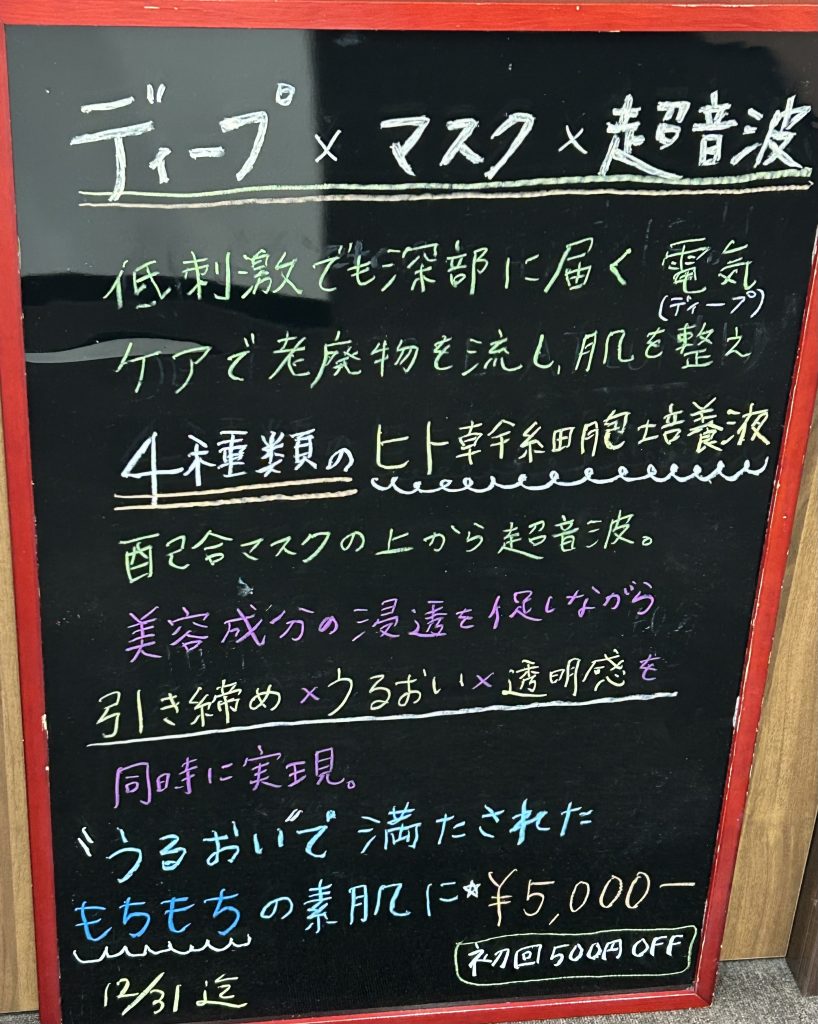 ディープ×マスク×超音波
低刺激でも深部に届く電気
(ディープ)
ケアで老廃物を流し、肌を整え
4種類のヒト幹細胞培養液
配合マスクの上から超音波。
美容成分の浸透を促しながら
引き締め×うるおい×透明感を
同時に実現。
"うるおい"で満たされた
もちもちの素肌に☆¥5,000ー
初回500円OFF
12/31迄